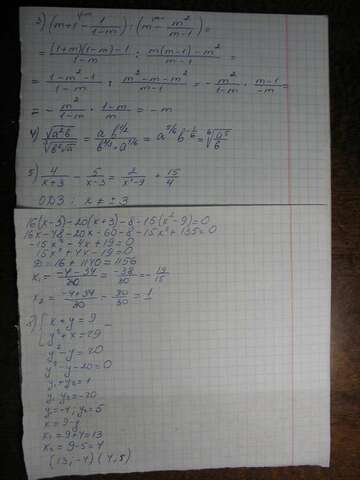 3) (m+1 - 1/(1-m)) : (m - m²/(m-1)) =
= ((1+m)(1-m)-1)/(1-m) : (m(m-1)-m²)/(m-1) =
= (1-m²-1)/(1-m) : (m²-m-m²)/(m-1) = - m²/(1-m) · (m-1)/(-m) =
= - m²/(1-m) · (1-m)/m = -m
5) 4/(x+3) - 5/(x-3) = 2/(x²-9) + 15/4
ОДЗ: x ≠ ±3
16(x-3)-20(x+3)-8-15(x²-9)=0
16x-48-20x-60-8-15x²+135=0
-15x²-4x+19=0
15x²+4x-19=0
D=16+1140=1156
x₁ = (-4-34)/30 = -38/30 = -19/15
x₂ = (-4+34)/30 = 30/30 = 1
{ x+y=9
y²+x=29
y²-y=20
y²-y-20=0
y₁+y₂=1
y₁y₂=-20
y₁=-4; y₂=5
x=9-y
x₁=9+4=13
x₂=9-5=4
(13;-4) (4,5)